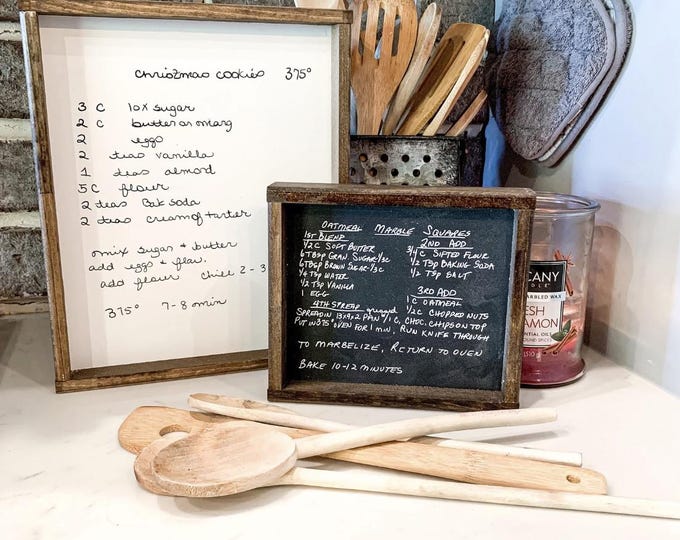 chrisZmas cookies 375°
3 C 10x sugar
2 C butter or marg
2 eggs
2 teas vanilla
1 teas almond
5 C flour
2 teas Bak soda
2 teas cream of tarter
mix sugar & butter
add eggs & flav.
add flour chill 2-3
375° 7-8 min
OATMEAL MARBLE SQUARES
1ST BLEND
1/2 C SOFT BUTTER
6 TBSP GRAN. SUGAR/3C
6 TBSP BROWN SUGAR/3C
1/4 TSP WATER
1/2 TSP VANILLA
1 EGG
2ND ADD
3/4 C SIFTED FLOUR
1/2 TSP BAKING SODA
1/2 TSP SALT
3RD ADD
1 C OATMEAL
1/2 C CHOPPED NUTS
4TH SPREAD greased
SPREAD IN 13x9x2 PAN W/1 C, CHOC. CHIPS ON TOP
PUT IN 375° OVEN FOR 1 MIN, RUN KNIFE THROUGH
TO MARBELIZE, RETURN TO OVEN
BAKE 10-12 MINUTES
CANY
MARBLED WAX
ESH
AMON